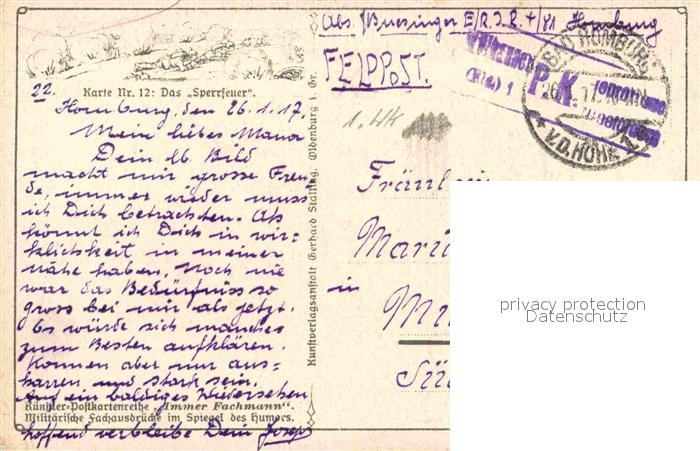 22.
Karte Nr. 12: Das „Sperrfeuer".
Homburg, den 26.1.17.
Mein liebes Mana
Dein lb. Bild
macht mir grosse Freu-
de, immer wieder muss
ich Dich betrachten. Ah
könnt ich Dich in wir-
klichkeit in meiner
nähe haben, Noch nie
war das Bedürfniss so
gross bei mir als jetzt.
Es würde sich manches
zum Besten aufklären.
Können aber nur aus-
harren und stark sein.
Auf ein baldiges Wiedersehen
Künstler-Postkartenreihe „Immer Fachmann".
Militärische Fachausdrücke im Spiegel des Humors.
hoffend verbleibe Dein Josep
Kunstverlagsanstalt Gerhard Stalling, Oldenburg i. Gr.
Abs. Buesinger E/R.I.R. 4/81 Homburg
FELDPOST.
P. K.
BAD HOMBURG
26. 1. 17.
V.D. HÖHE
1.WK
Fräulein
Mari
in
Mü
Sü
privacy protection
Datenschutz